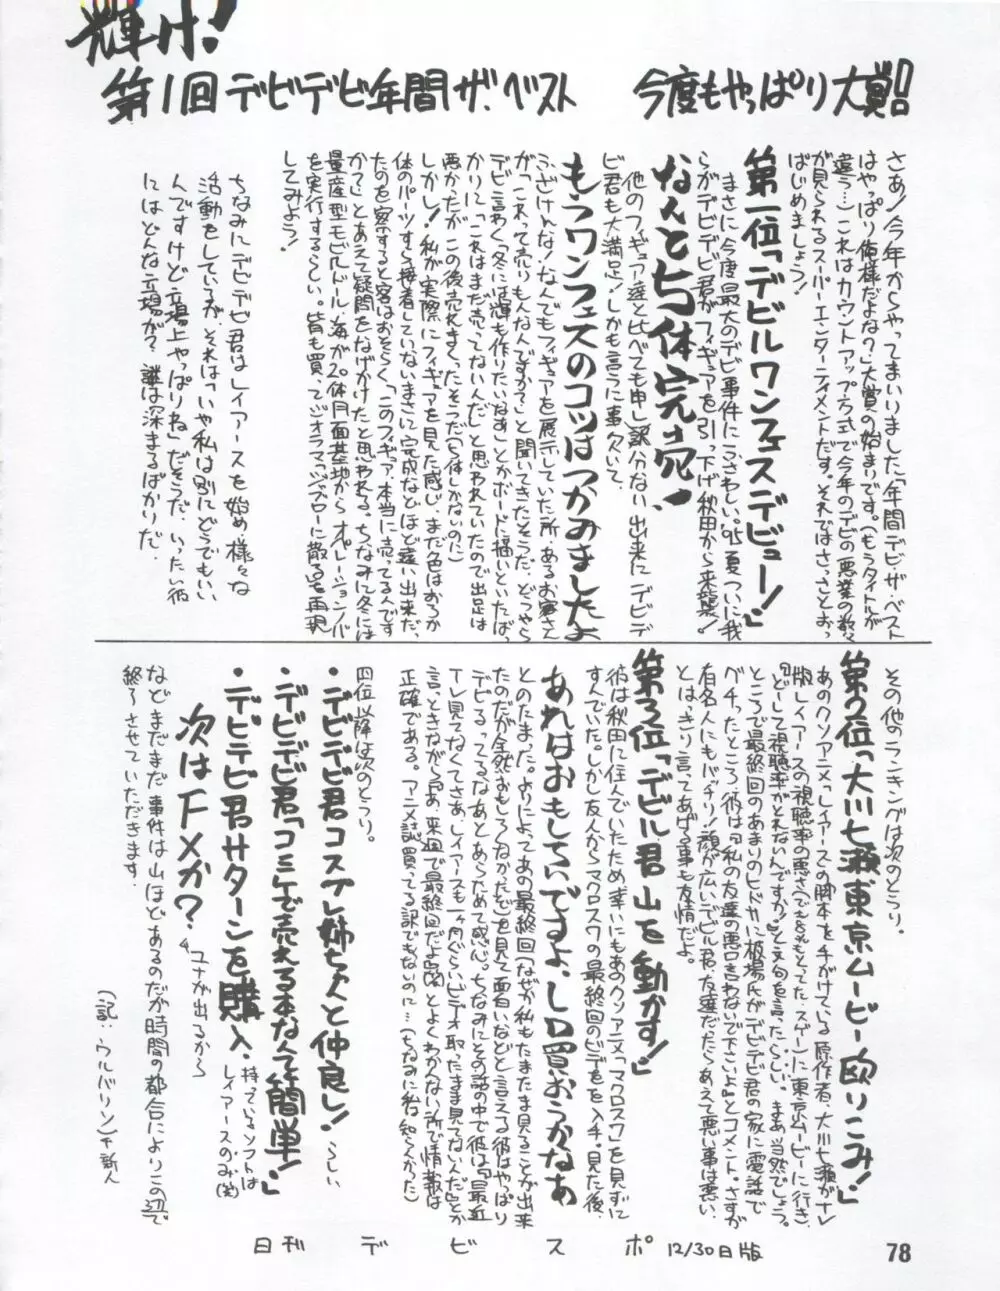 輝け!
第1回デビデビ年間ザ・ベスト 今度もやっぱり大賞!!
さあ!今年からやってまいりました「年間デビザ・ベスト
はやっぱり俺様だよな?」大賞の始まりです。(もうタイトルが
違う…)これはカウントアップ方式で今年のデビの悪業の数々
が見られるスーパーエンターティメントだす。それではさっさとおっ
ぱじめましょう!
第一位「デビルワンフェスデビュー!」
まさに今度最大のデビ事件にふさわしい。'95夏ついに我
らがデビデビ君がフィギュアを引っ下げ秋田から来襲!
なんと5体完売!
他のフィギュア達と比べても申し訳分ない出来にデビデ
ビ君も大満足!しかも言うに事欠いて、
もうワンフェスのコツはつかみましたよ
ふざけんな!なんでもフィギュアを展示していた所、あるお客さん
が「これって売りもんなんですか?」と聞いてきたそうだ。どうやら
デビ言わく「冬には輝も作りたいなぁ」とかボードに描いといたば、
かりに「これはまだ売ってないんだ」と思われていたので出足は
悪かったが、この後売れまくったそうだ(5体しかないのに)
しかし!私が実際にフィギュアを見た感じ、まだ色はおろか
体のパーツすら接着していない、まさに完成などほど遠い出来だ。
たのを察すると客はおそらく「このフィギュア本当に売ってるんです
かて」とあえて疑問をなげかけたと思われる。ちなみに冬には
量産型モビルドール海が20体月面基地からオペレーションバ
を実行するらしい。皆も買ってジオラマ「ジャブローに散る」を再現
してみよう!
ちなみにデビデビ君はレイアースを始め様々な
活動をしているが、それは「いや私は別にどうでもいい
んですけど立場上やっぱりね」だそうだ。いったい彼
にはどんな立場が?謎は深まるばかりだ。
その他のランキングは次のとうり。
第2位「大川七瀬東京ムービー欧りこみ!」
あのクソアニメ「レイアースの脚本を手がけている原作者、大川七瀬がテレ
版レイアースの視聴率の悪さに東京ムービーに行き、
「どーして視聴率がとれないんですか!」と文句を言ったらしい。まあ当然でしょう。
ところで最終回のあまりのヒドさに板場氏がデビデビ君の家に電話で
グチったところ、彼は「私の友達の悪口言わないで下さいよ」とコメント。さすが
有名人にもバッチリ顔が広いデビル君、友達だったらあえて悪い事は悪い、
とはっきり言ってあげる事も友情だよ。
第3位「デビル君山を動かす!」
彼は秋田に住んでいたため幸いにもあのクソアニメ「マクロス7」を見ずに
すんでいた。しかし友人からマクロス7の最終回のビデオを入手、見た後、
あれはおもしろいですよ、LD買おうかなぁ
とのたまった。よりによってあの最終回(なぜか私もたまたま見ることが出来
たのだが全然おもしろくなかったぞ)を見て面白いなどと言える彼はやっぱり
デビるってるなあとあらためて感心。ちなみにその話の中で彼は「最近
テレ見てなくてさあ、レイアースも一ヶ月ぐらいビデオ取ったまま見てないんだ」とか
言っときながら「あ、来週で最終回だよ(笑)」とよくわかない所で情報は
正確である。アニメ誌買ってる訳でもないのに…(ちなみに私は知らんかった)
四位以降は次のとうり。
・デビデビ君コスプレ姉ちゃんと仲良し! らしい
・デビデビ君「コミケで売れる本なんて簡単!」
・デビデビ君サターンを購入、持っているソフトは
レイアースのみ(笑)
次はFXか?
↑ユナが出るから
などまだまだ事件は山ほどあるのだが時間の都合によりこの辺で
終らさせていただきます。
(記:ウルバリン)+新人
日刊 デ ビ ス ポ 12/30日版
78